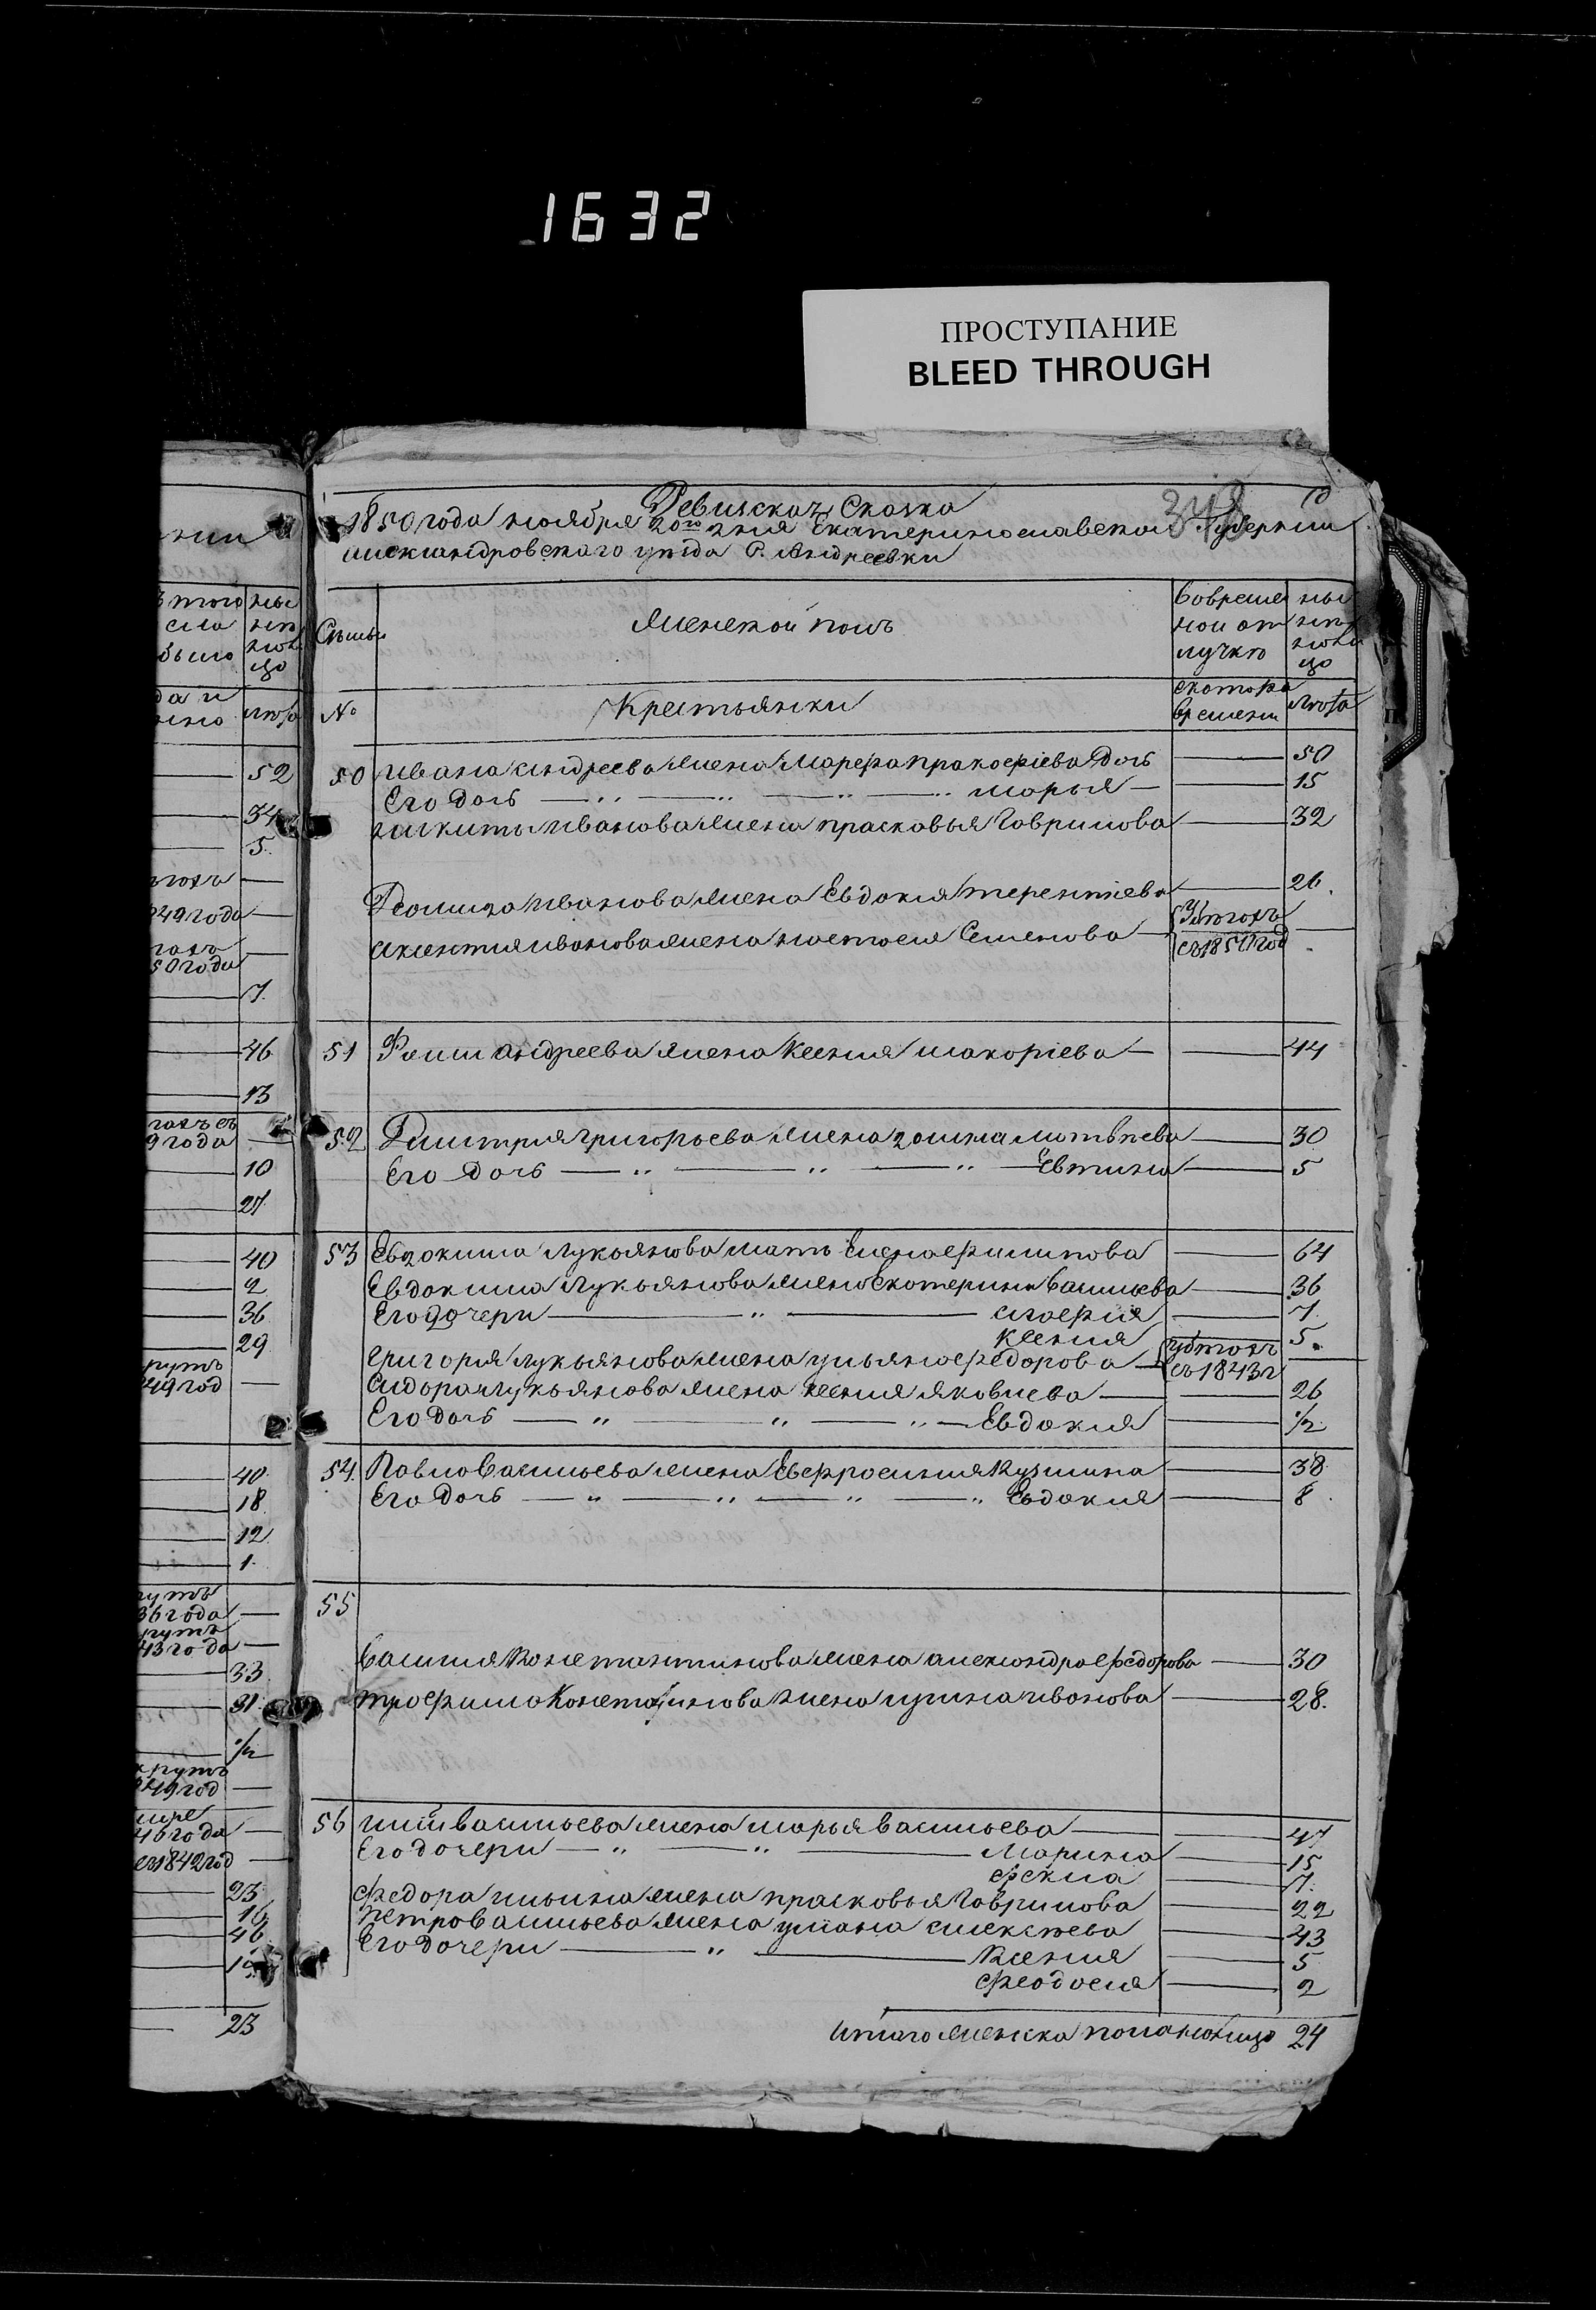 1632
ПРОСТУПАНИЕ
BLEED THROUGH
Ревискаъ Сказка
1850 года ноября 20го дня Екатеринославской Губернии
Александровского уезда С. Андреевки
Семьи
Женской полъ
Вовремен
ной от
лучке
ны
не
нали
цо
№
Крестьянки
скотора
времени
лета
50 Ивана Андреева жена Марефа Пракофіева дочь 50
Его дочь Марья 15
Никиты Иванова жена Прасковья Гаврилова 32
Демида Иванова жена Евдокия Терентіева 26
Акентия Иванова жена Настасия Семенова
в бегахъ
съ 1850 год
51 Фомы Андреева жена Ксения Макоріева 44
52 Дмитрия Григорьева жена Домна Матвѣева 30
Его дочь Евтина 5
53 Евдокима Лукьянова мать Елена Филипова 64
Евдокима Лукьянова жена Екотерина Василева 36
Его дочери Марфия 7
Ксения 5
Григория Лукьянова жена Ульяна Федорова
в бегахъ
съ 1843 г
Сидора Лукьянова жена Ксения Яковлева 26
Его дочь Евдокия 1/2
54 Павла Василева жена Евфросиния Кузмина 38
Его дочь Евдокия 8
55
Василия Константинова жена Александра Федорова 30
Трофима Констатинова жена Ирина Иванова 28
56 Ильи Василева жена Марья Василева 47
Его дочери Марина 15
Фекла 7
Федора Ильина жена Прасковья Гаврилова 22
Петра Василева жена Улиана Алексеева 43
Его дочери Ксения 5
Феодосия 2
Итаго женска пола налицо 24
52
34
5
49 года
50 года
7
46
13
9 года
10
27
40
2
36
29
49 год
40
18
12
1
36 года
43 года
33
31
1/2
49 год
46 года
съ 1842 год
23
16
46
23